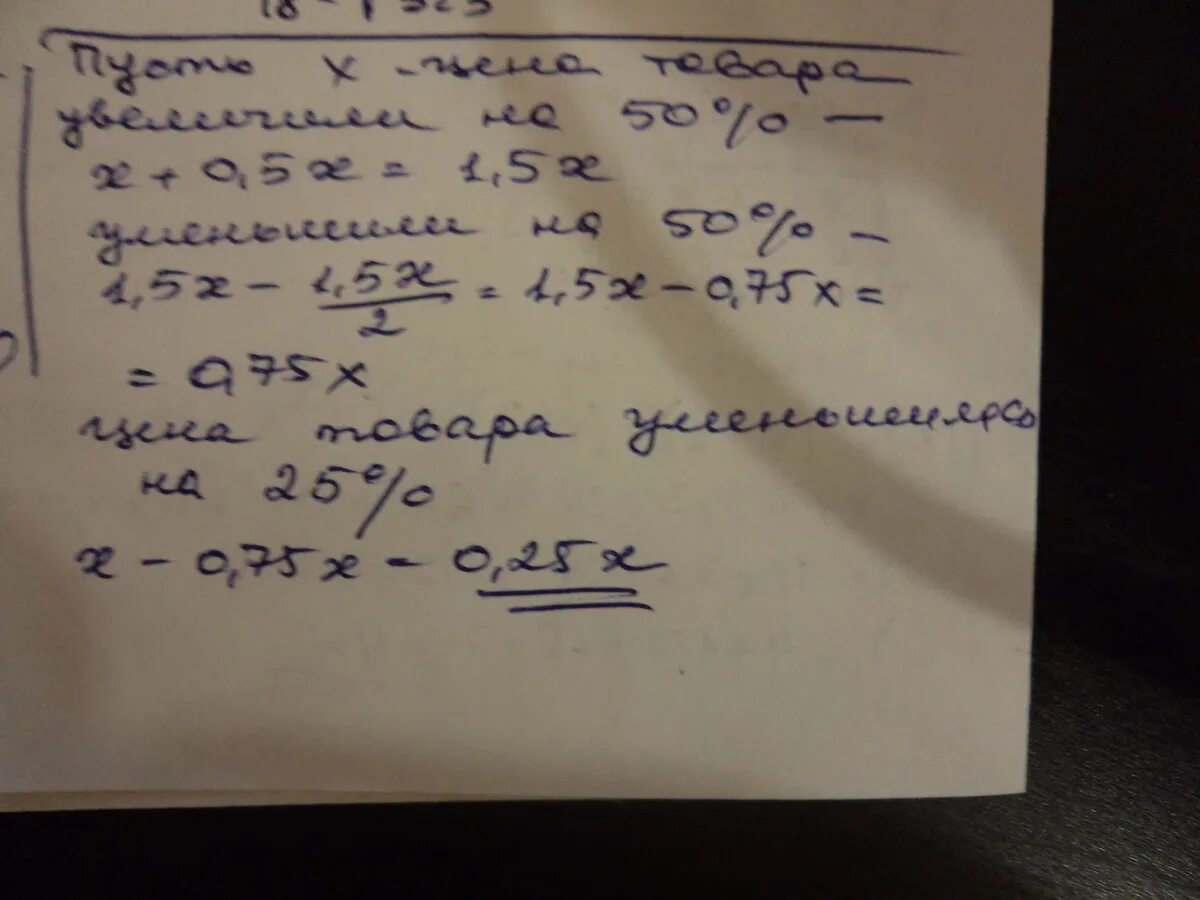 Пусть x - цена товара
увеличили на 50% —
x + 0,5x = 1,5x
уменьшили на 50% —
1,5x - 1,5x/2 = 1,5x - 0,75x =
= 0,75x
цена товара уменьшилась
на 25%
x - 0,75x = 0,25x